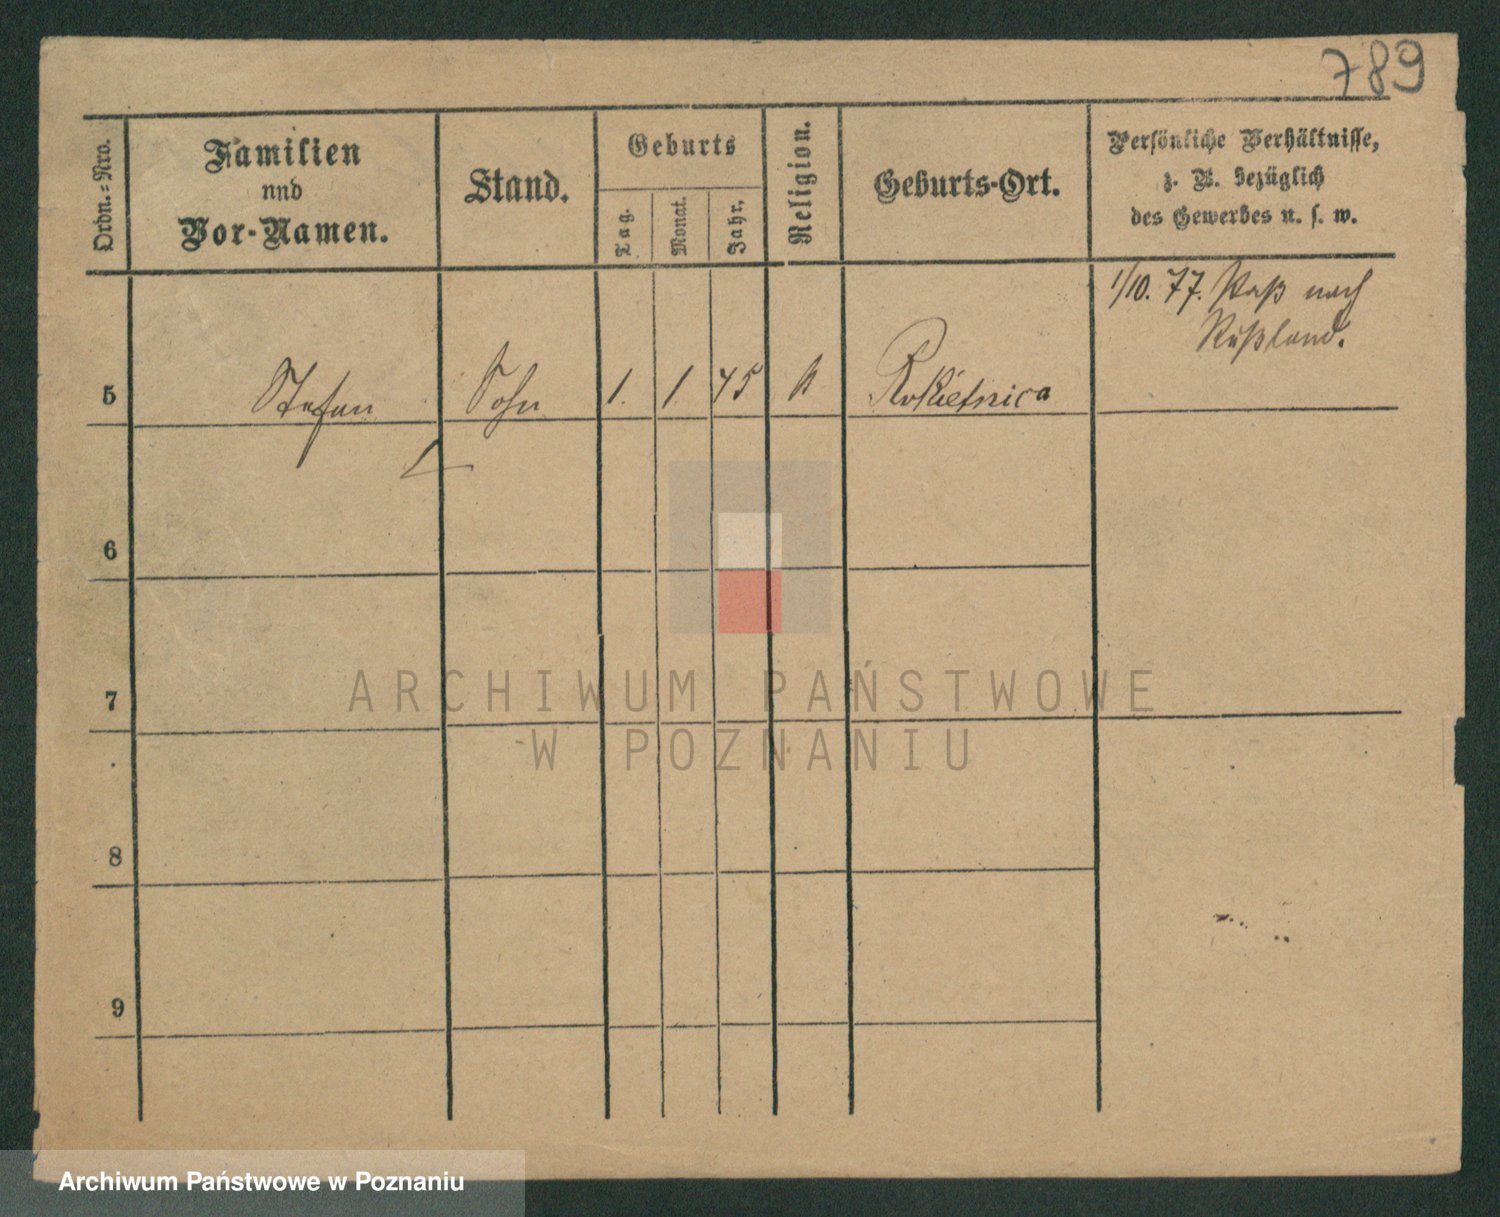 789
Ordn.-Nro.
Familien
und
Vor-Namen.
Stand.
Geburts
Tag.
Monat.
Jahr.
Religion.
Geburts-Ort.
Persönliche Verhältnisse,
z. B. bezüglich
des Gewerbes u. s. w.
1/10. 77. Paß nach
Rußland.
5 Stefan Sohn 1. 1. 75 k Rokietnica
6
7
8
9
ARCHIWUM PAŃSTWOWE
W POZNANIU
Archiwum Państwowe w Poznaniu